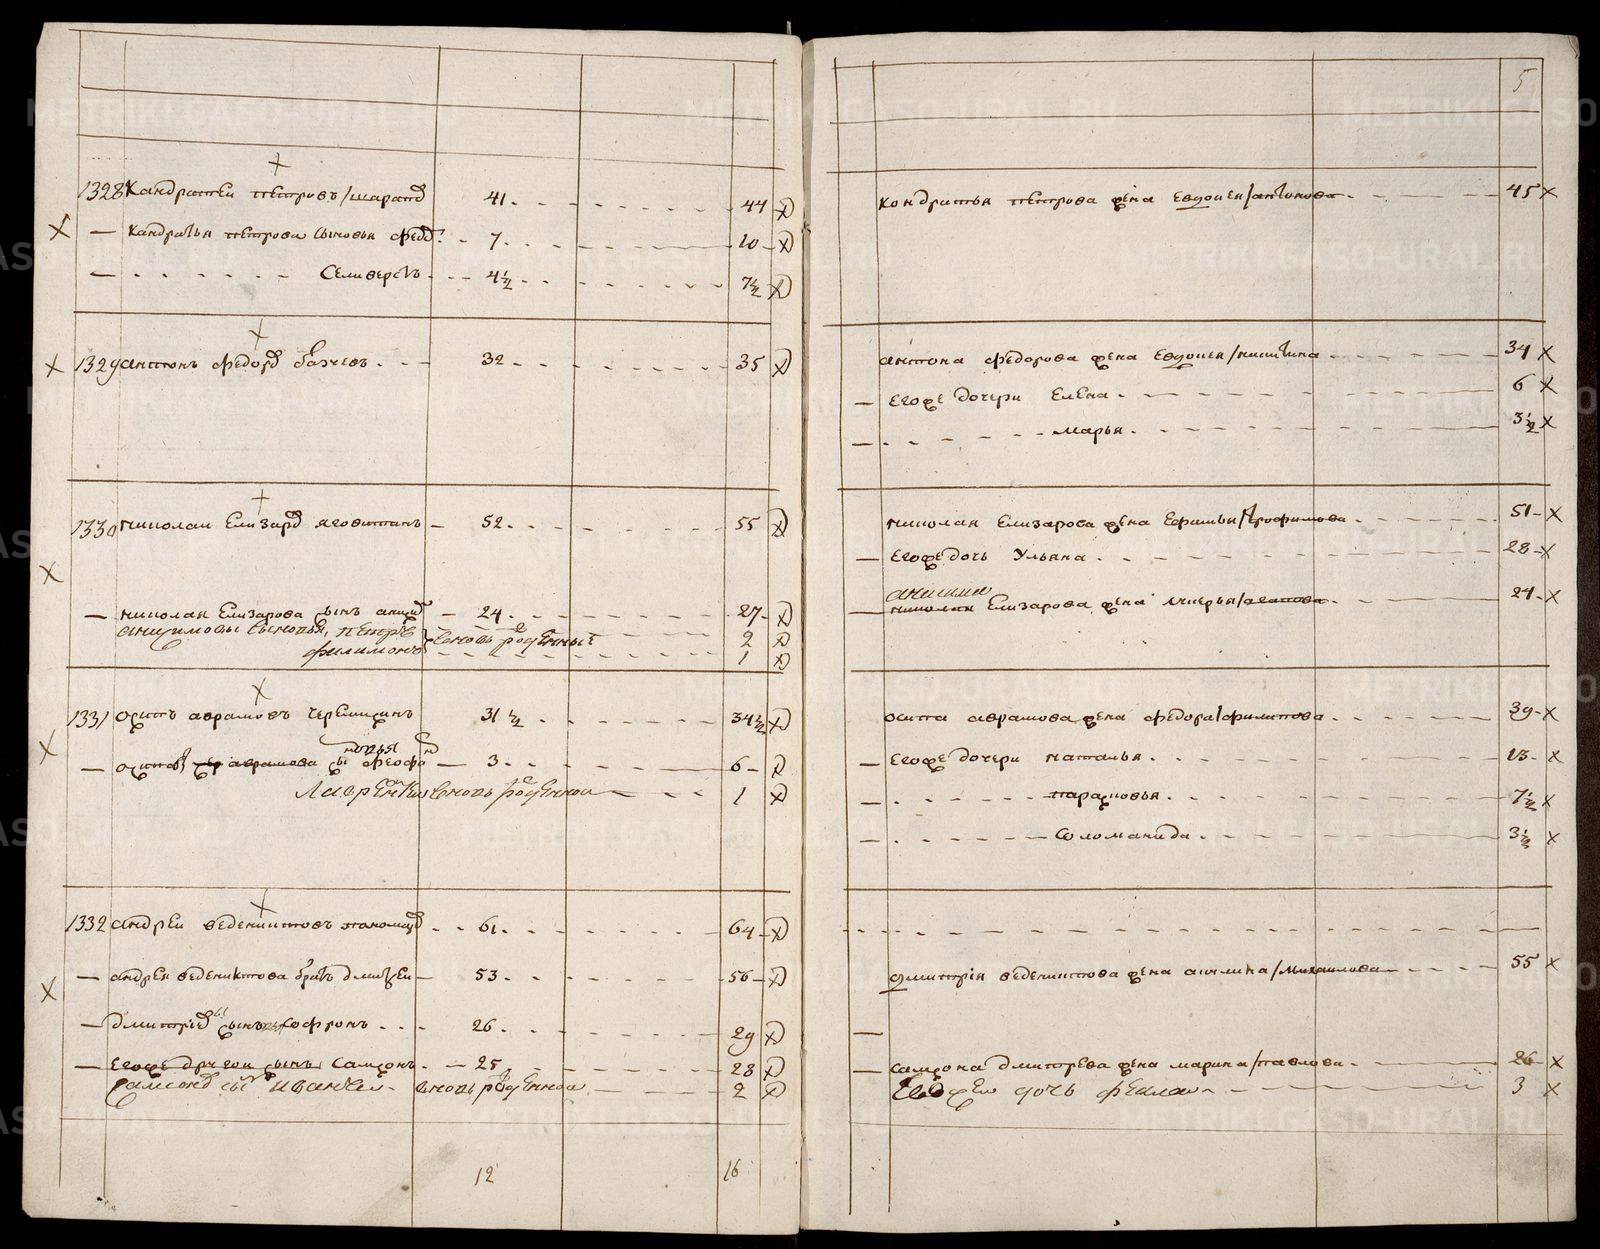 5
1328 Кандратеи петровъ/шарапо 41. 44
— Кандратья петрова сыновья федо. 7. 10
— Селиверстъ 4½ 7½
1329 антонъ федоро 32 35
1330 николаи Елизаро 52. 55
— николая Елизарова сынъ аниси 24 27
анисимовы сыновья, петръ вновь рожденные 2
филимонъ 1
1331 осипъ аврамовъ Черемисинъ 31½ 34½
— осипа аврамова сыновья феофа 3. 6
Лаврентеи вновь рожденнои 1
1332 андреи веденихтовъ пономаре 61. 64
— андрея веденихтова братъ дмитреи 53 56
— дмитриевы сынъ софронъ 26 29
— Егоже другои сынъ Самсонъ 25 28
Самсоно сынъ иванъ вновь рожденнои 2
12 16
Кондратья петрова жена Евдокея/антонова 45
антона федорова жена Евдокея/никитина 34
— Егоже дочери Елена 6
— марья 3½
николая Елизарова жена Ефимья/трофимова 51
— Егоже дочь Ульяна 28
анисима
— николая Елизарова жена /агапова 24
осипа аврамова жена федора/филипова 39
— Егоже дочери наталья 13
— парасковья 7½
— Соломанида 3½
дмитрия веденихтова жена акилина/михаилова 55
— самсона дмитрева жена марина/павлова 26
Евоже дочь фекла 3
METRIKI.GASO-URAL.RU